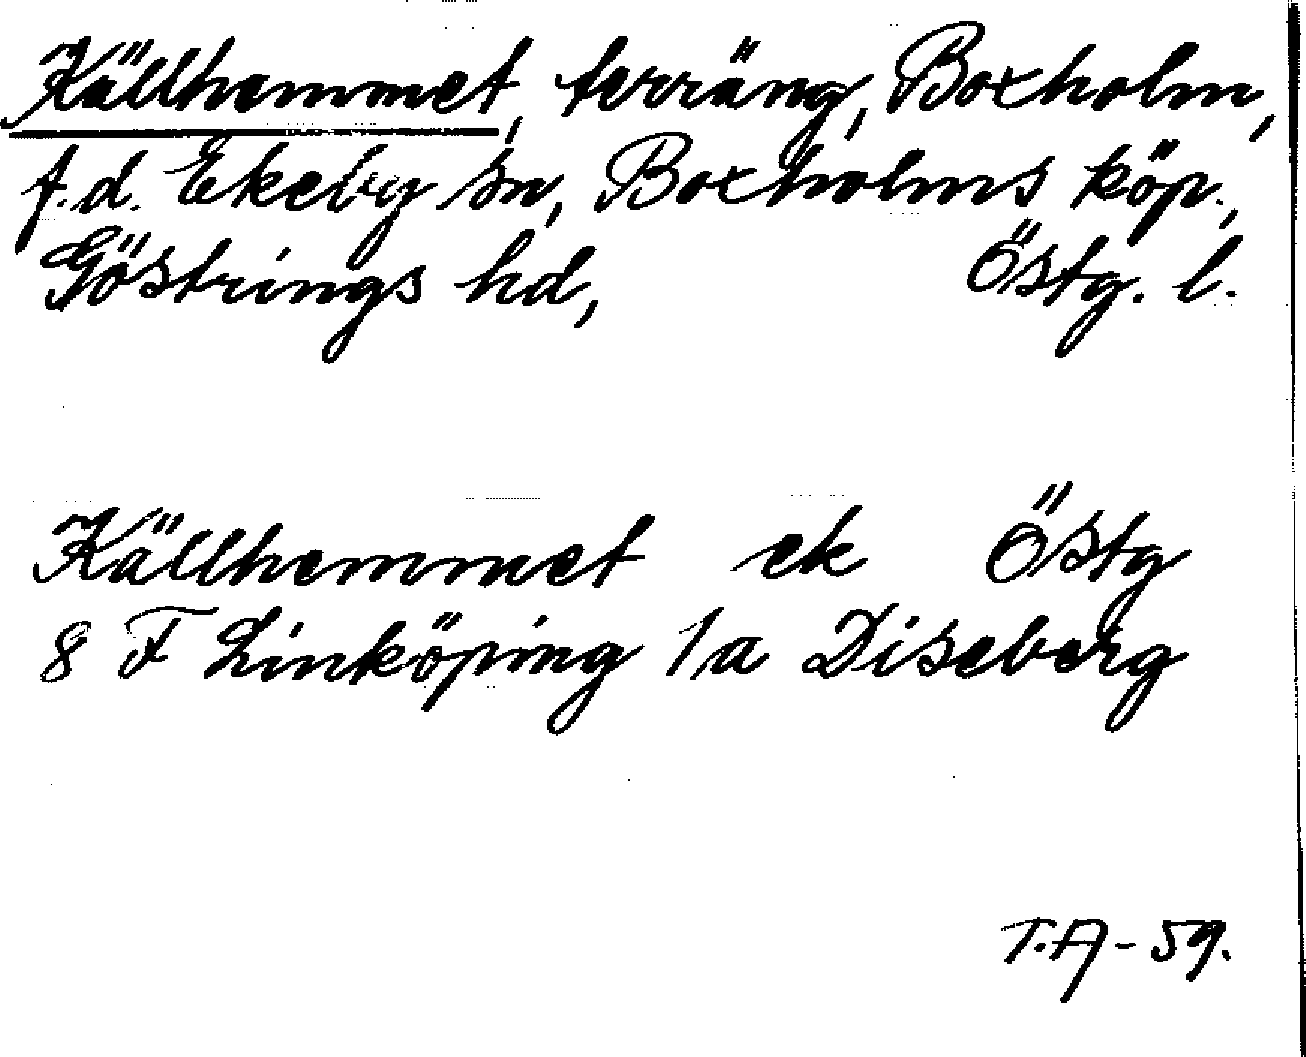 Källhemmet, terräng, Boxholm,
f.d. Ekeby sn, Boxholms köp.,
Göstrings hd, Östg. l.
Källhemmet ek Östg
8 F Linköping 1a Diseberg
T.A-59.